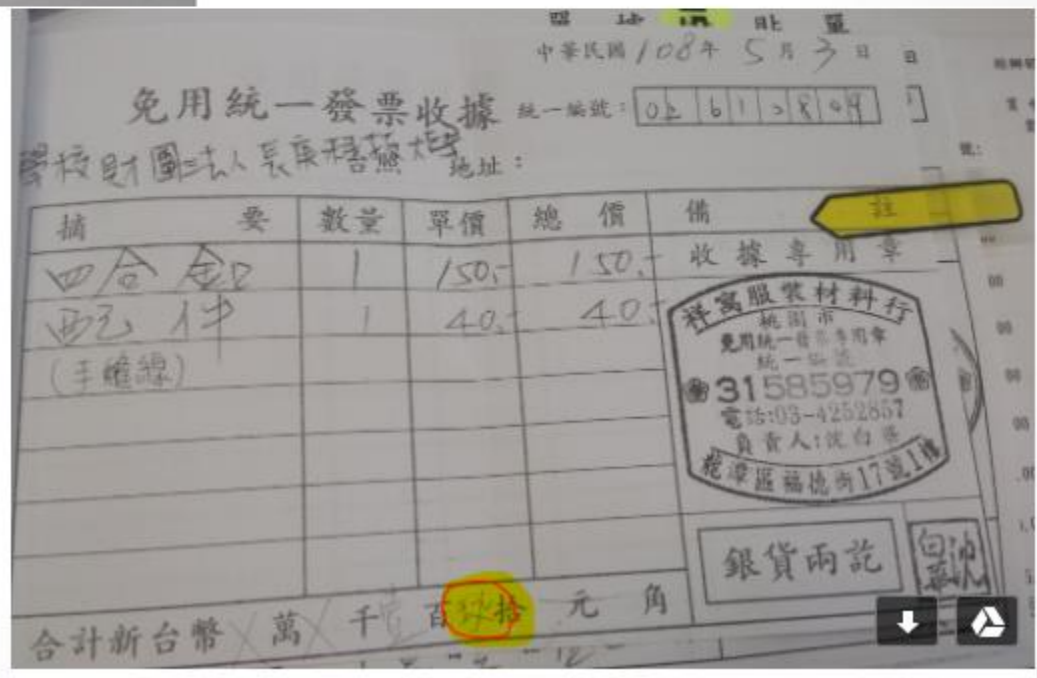 貼單
中華民國108年5月3日
免用統一發票收據 統一編號:02612849
學校財團法人長庚 地址:
摘要 數量 單價 總價 備註
四合釦 1 150.- 150.- 收據專用章
配件 1 40.- 40.-
(手縫線)
祥富服裝材料行
桃園市
免用統一發票專用章
統一編號
31585979
電話:03-4252857
負責人:沈白
龍潭區福德街17號1樓
銀貨兩訖
合計新台幣 萬 千壹百玖拾 元 角